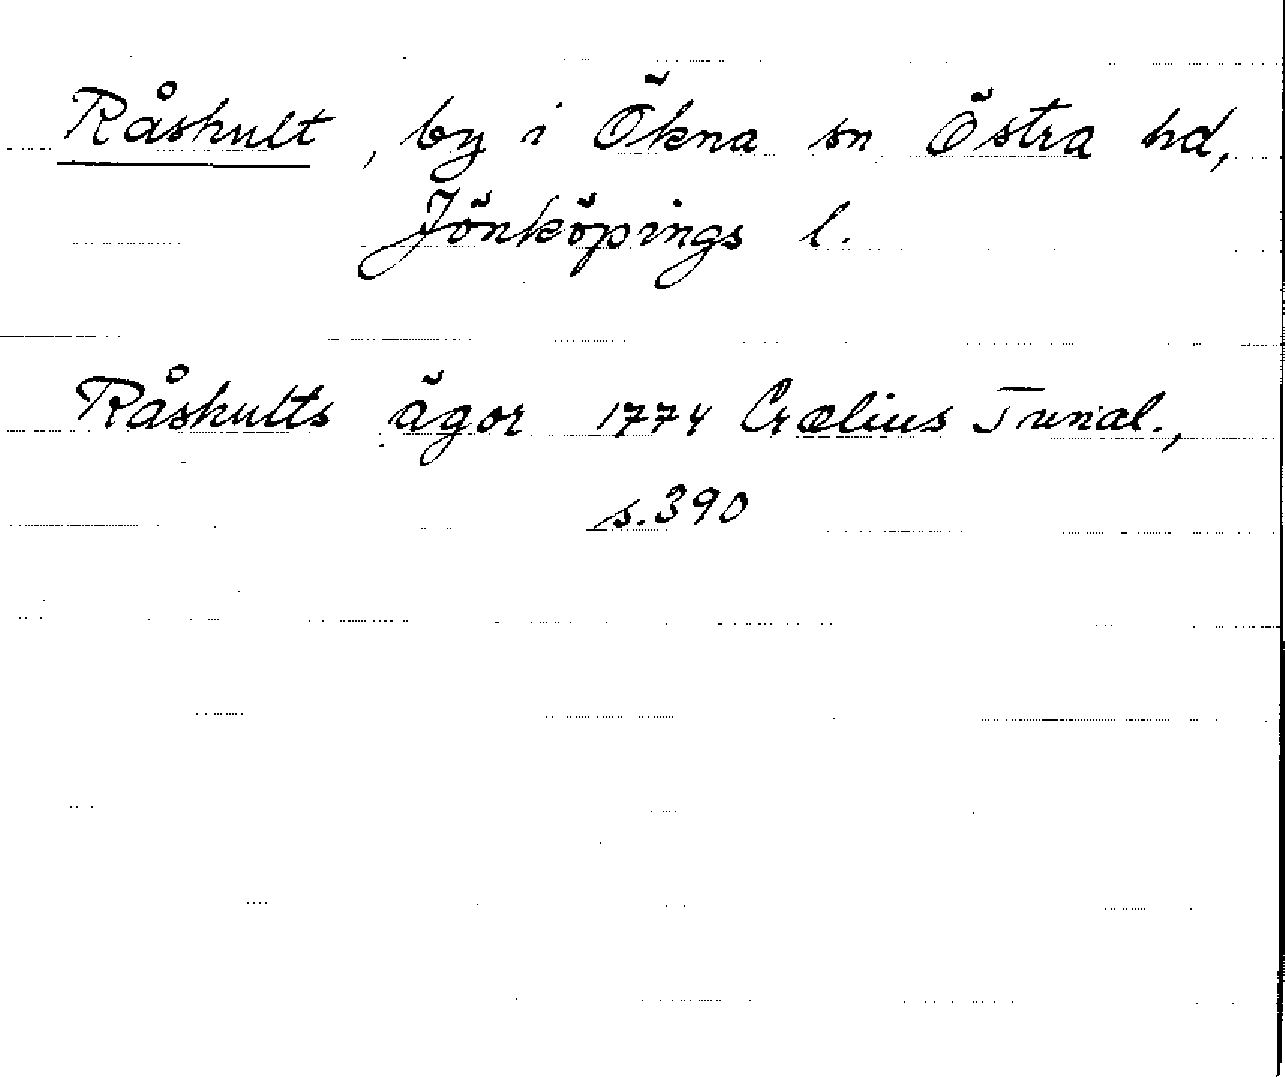 Råshult, by i Ökna sn Östra hd,
Jönköpings l.
Råshults ägor 1774 Crælius Tunal.,
s.390